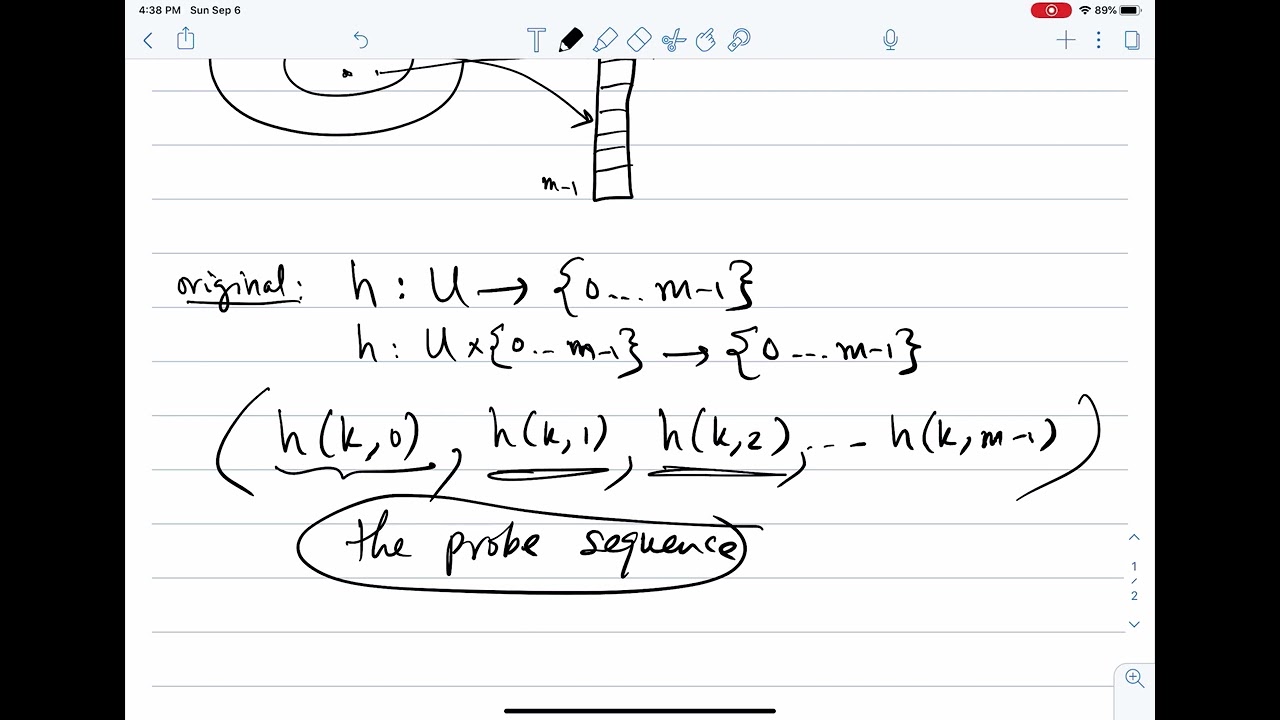 4:38 PM Sun Sep 6
89%
T
m-1
original: h : U → {0...m-1}
h : U × {0..m-1} → {0...m-1}
(h(k,0), h(k,1), h(k,2), ... h(k,m-1))
the probe sequence
1
/
2